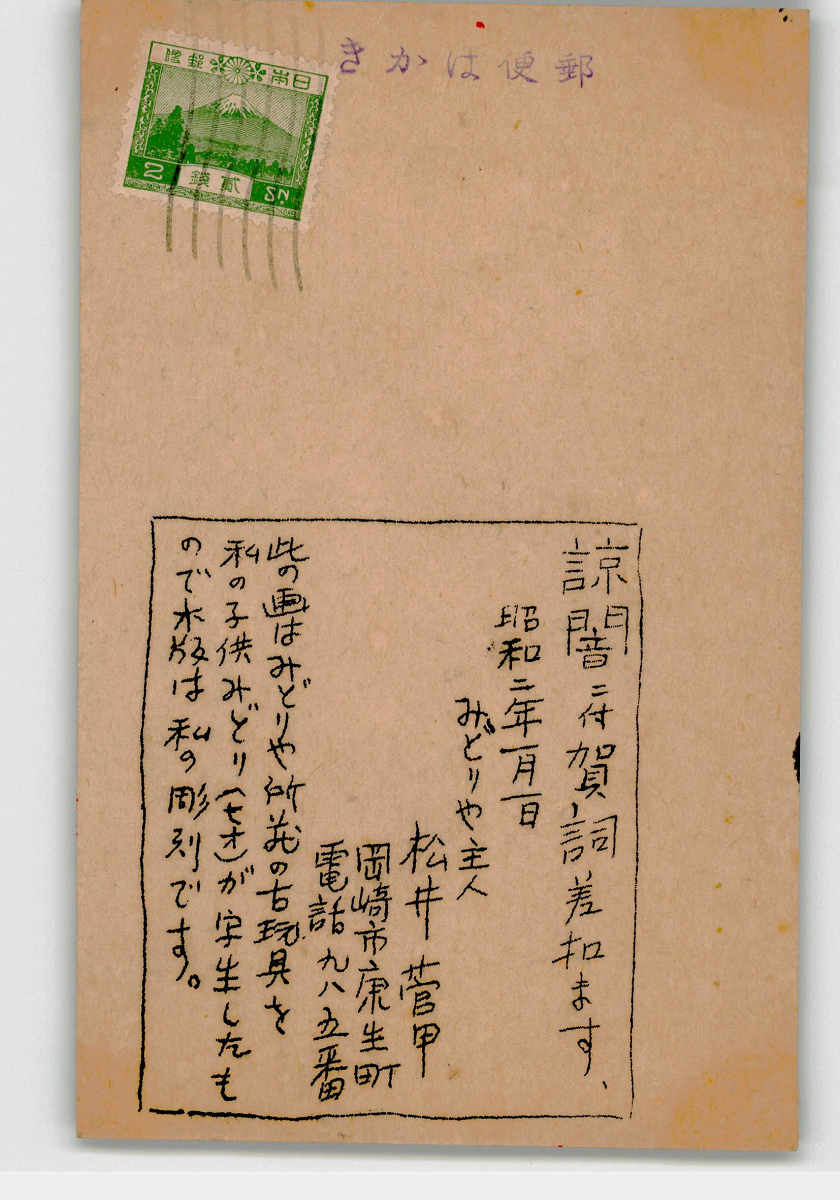 郵便はかき
日本郵便
貳銭
2 SN
諒闇ニ付賀詞差扣ます、
昭和二年一月一日
みどりや主人
松井菅甲
岡崎市康生町
電話九八五番
此の画はみどりや所蔵の古玩具を
私の子供みどり(七才)が写生したも
ので木版は私の彫刻です。